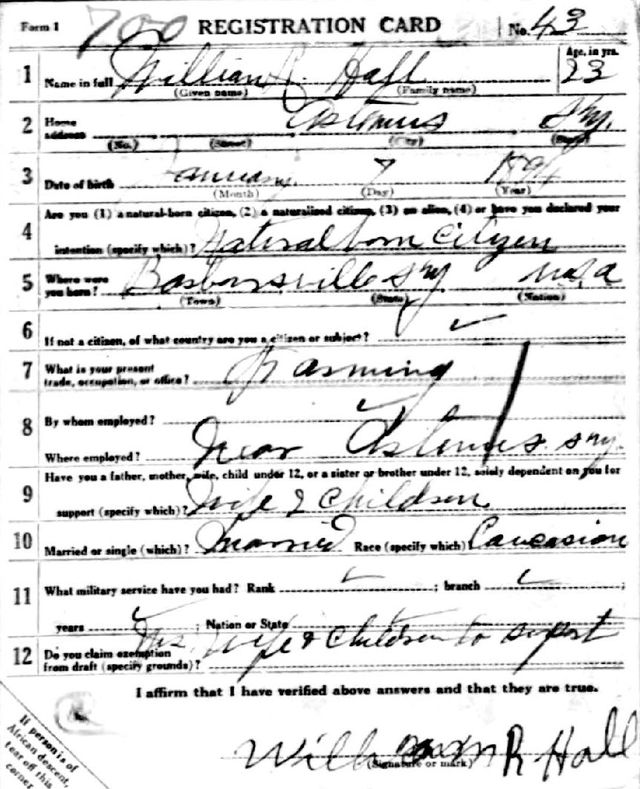 Form 1 700 REGISTRATION CARD No. 43
1 Name in full William R. Hall Age, in yrs. 23
(Given name) (Family name)
2 Home address Artemus Ky.
(No.) (Street) (City) (State)
3 Date of birth January 7 1894
(Month) (Day) (Year)
4 Are you (1) a natural-born citizen, (2) a naturalized citizen, (3) an alien, (4) or have you declared your
intention (specify which)? Natural born Citizen
5 Where were you born? Barboursville Ky U.S.A
(Town) (State) (Nation)
6 If not a citizen, of what country are you a citizen or subject? ✓
7 What is your present trade, occupation, or office? Farming
8 By whom employed? ✓
Where employed? Near Artemus Ky.
9 Have you a father, mother, wife, child under 12, or a sister or brother under 12, solely dependent on you for
support (specify which)? Wife & Children
10 Married or single (which)? Married Race (specify which) Caucasion
11 What military service have you had? Rank ✓ ; branch ✓
years ✓ ; Nation or State
12 Do you claim exemption from draft (specify grounds)? Yes, Wife & Children to suport
I affirm that I have verified above answers and that they are true.
William R Hall
(Signature or mark)
If person is of
African descent,
tear off this
corner